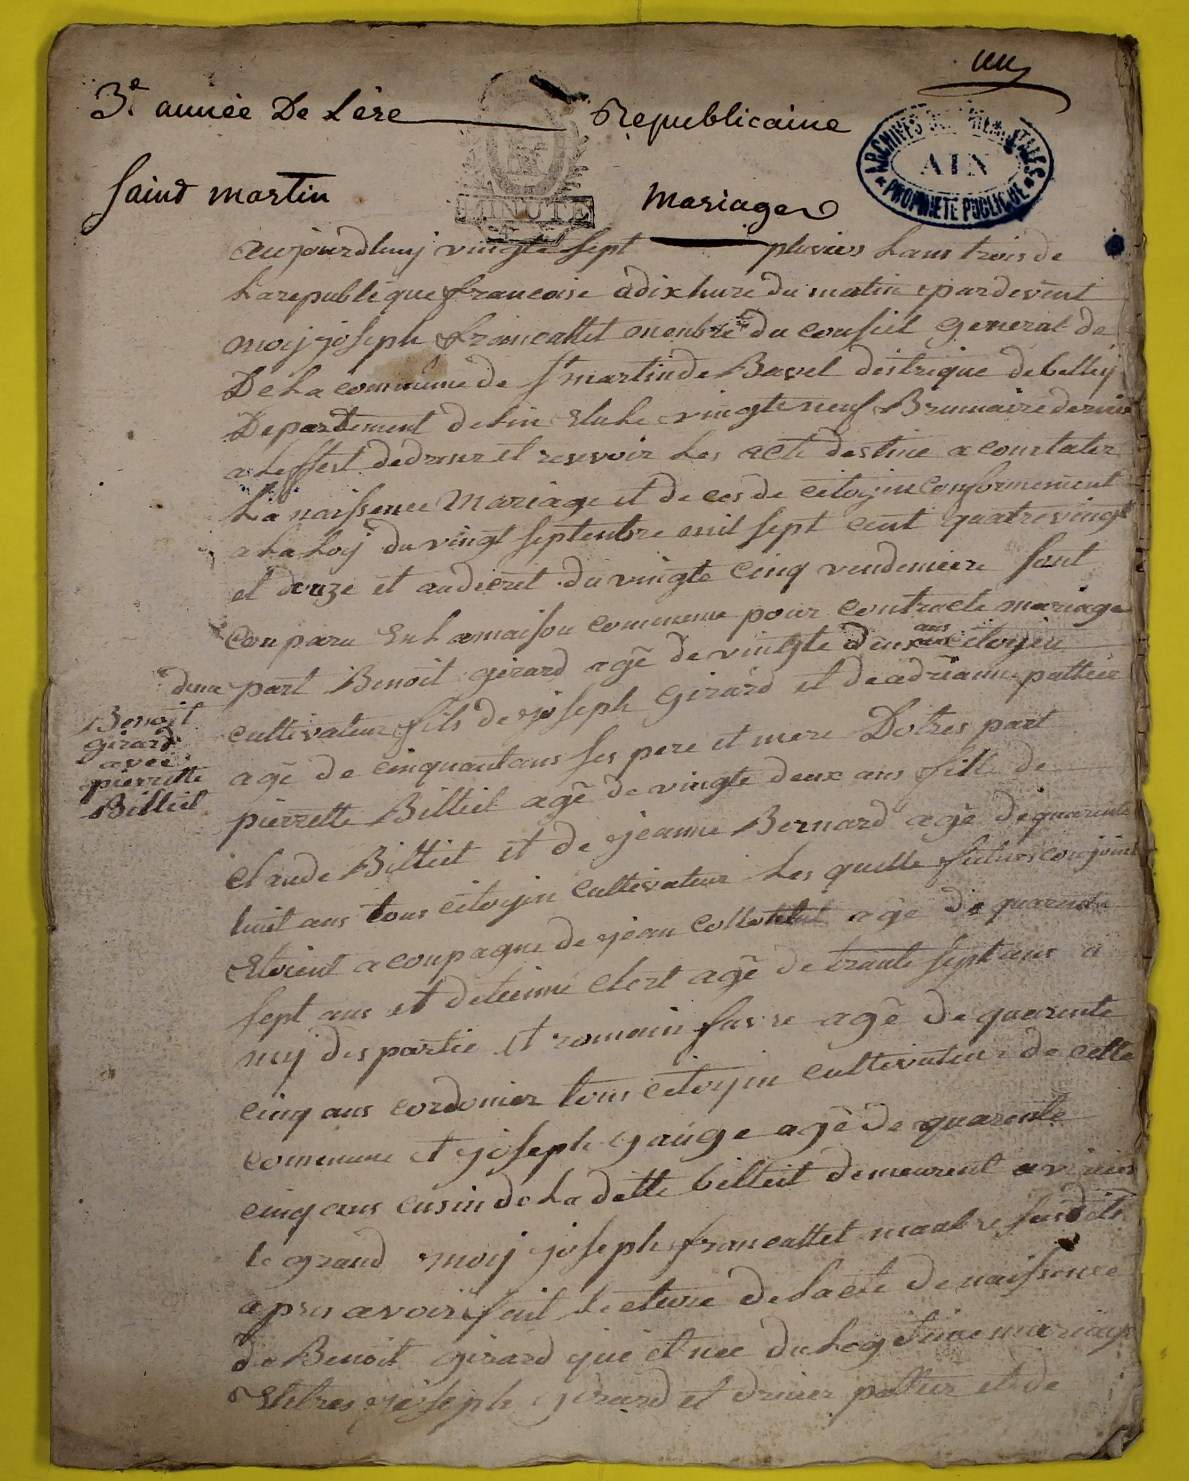 un
3e année De Lère Republicaine
ARCHIVES DEPARTEMENTALES
AIN
PROPRIETE PUBLIQUE
Saint martin mariages
MINUTE
aujourdhuij vingte sept pluvios Lans trois de
La republique francoise a dix hure du matin pardevent
moij joseph francattet menbre du conseil general de
De La commune de St martin de Bavel destrique de belleij
Departement de lin Elu Le vingte neuf Brumaire dernie
a Leffest dedreser et resevoir Les acte destine a constater
La naissence Mariage et deces de citoyin Conformement
a La Loij du vingt septenbre mil sept cent quatrevingt
et douze et audicret du vingte cinq vendemiere sont
conparu En La maison commune pour contracte mariage
dune part Benoit girard agé de vingte deux ans citoyin
cultivateur fils de joseph girard et de adrianne patteir
agé de cinquant ans ses pere et mere Dotres part
Benoit
girard
avec
pierrette
Billiet
pierrette Billiet agé de vingte deux ans fille de
claude Billiet et de jeanne Bernard agé de quarente
huit ans tous citoyin cultivateur Les quelle futurs conjoint
Etoient aconpagne de jean agé de quarente
sept ans et detienne clert agé de trante sept ans a
mij des partie et romain favre agé de quarente
cinq ans cordonier tous citoyin cultivateur de cette
commune et joseph gauge agé de quarente
cinq ans cusin de La ditte billiet demeurent a virieu
le grand moij joseph francattet manbre susdite
apres avoir fait Lecture de Lacte de naissence
de Benoit girard qui et nee du Legitime mariage
Entres joseph girard et driner patteir et de